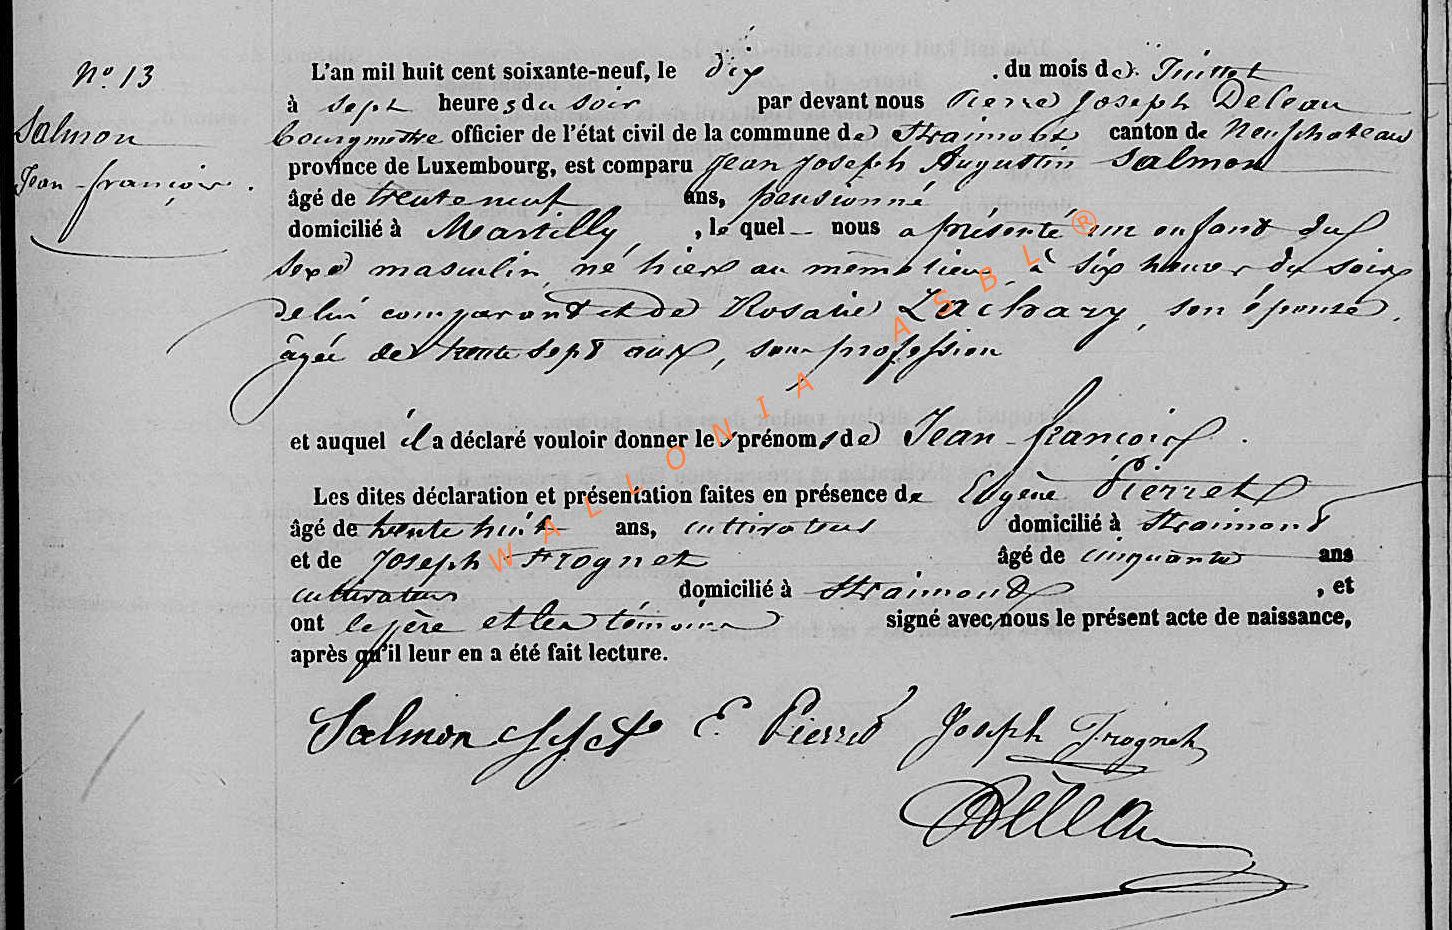 N° 13
Salmon
Jean-françois.
L'an mil huit cent soixante-neuf, le dix du mois de Juillet
à sept heures du soir par devant nous Pierre Joseph Deleau
bourgmestre officier de l'état civil de la commune de Straimont canton de Neufchateau
province de Luxembourg, est comparu Jean Joseph Augustin Salmon
âgé de trente neuf ans, pensionné
domicilié à Martilly, le quel nous a présenté un enfant du
sexe masculin né hier au même lieu à six heures du soir
de lui comparant et de Rosalie Zachary, son épouse,
âgée de trente sept ans, sans profession
et auquel il a déclaré vouloir donner les prénoms de Jean-françois.
Les dites déclaration et présentation faites en présence de Eugène Pierret
âgé de trente huit ans, cultivateur domicilié à Straimont
et de Joseph Frognet âgé de cinquante ans
cultivateur domicilié à Straimont, et
ont le père et les témoins signé avec nous le présent acte de naissance,
après qu'il leur en a été fait lecture.
Salmon E. Pierret Joseph Frognet
Deleau
WALLONIA ASBL®